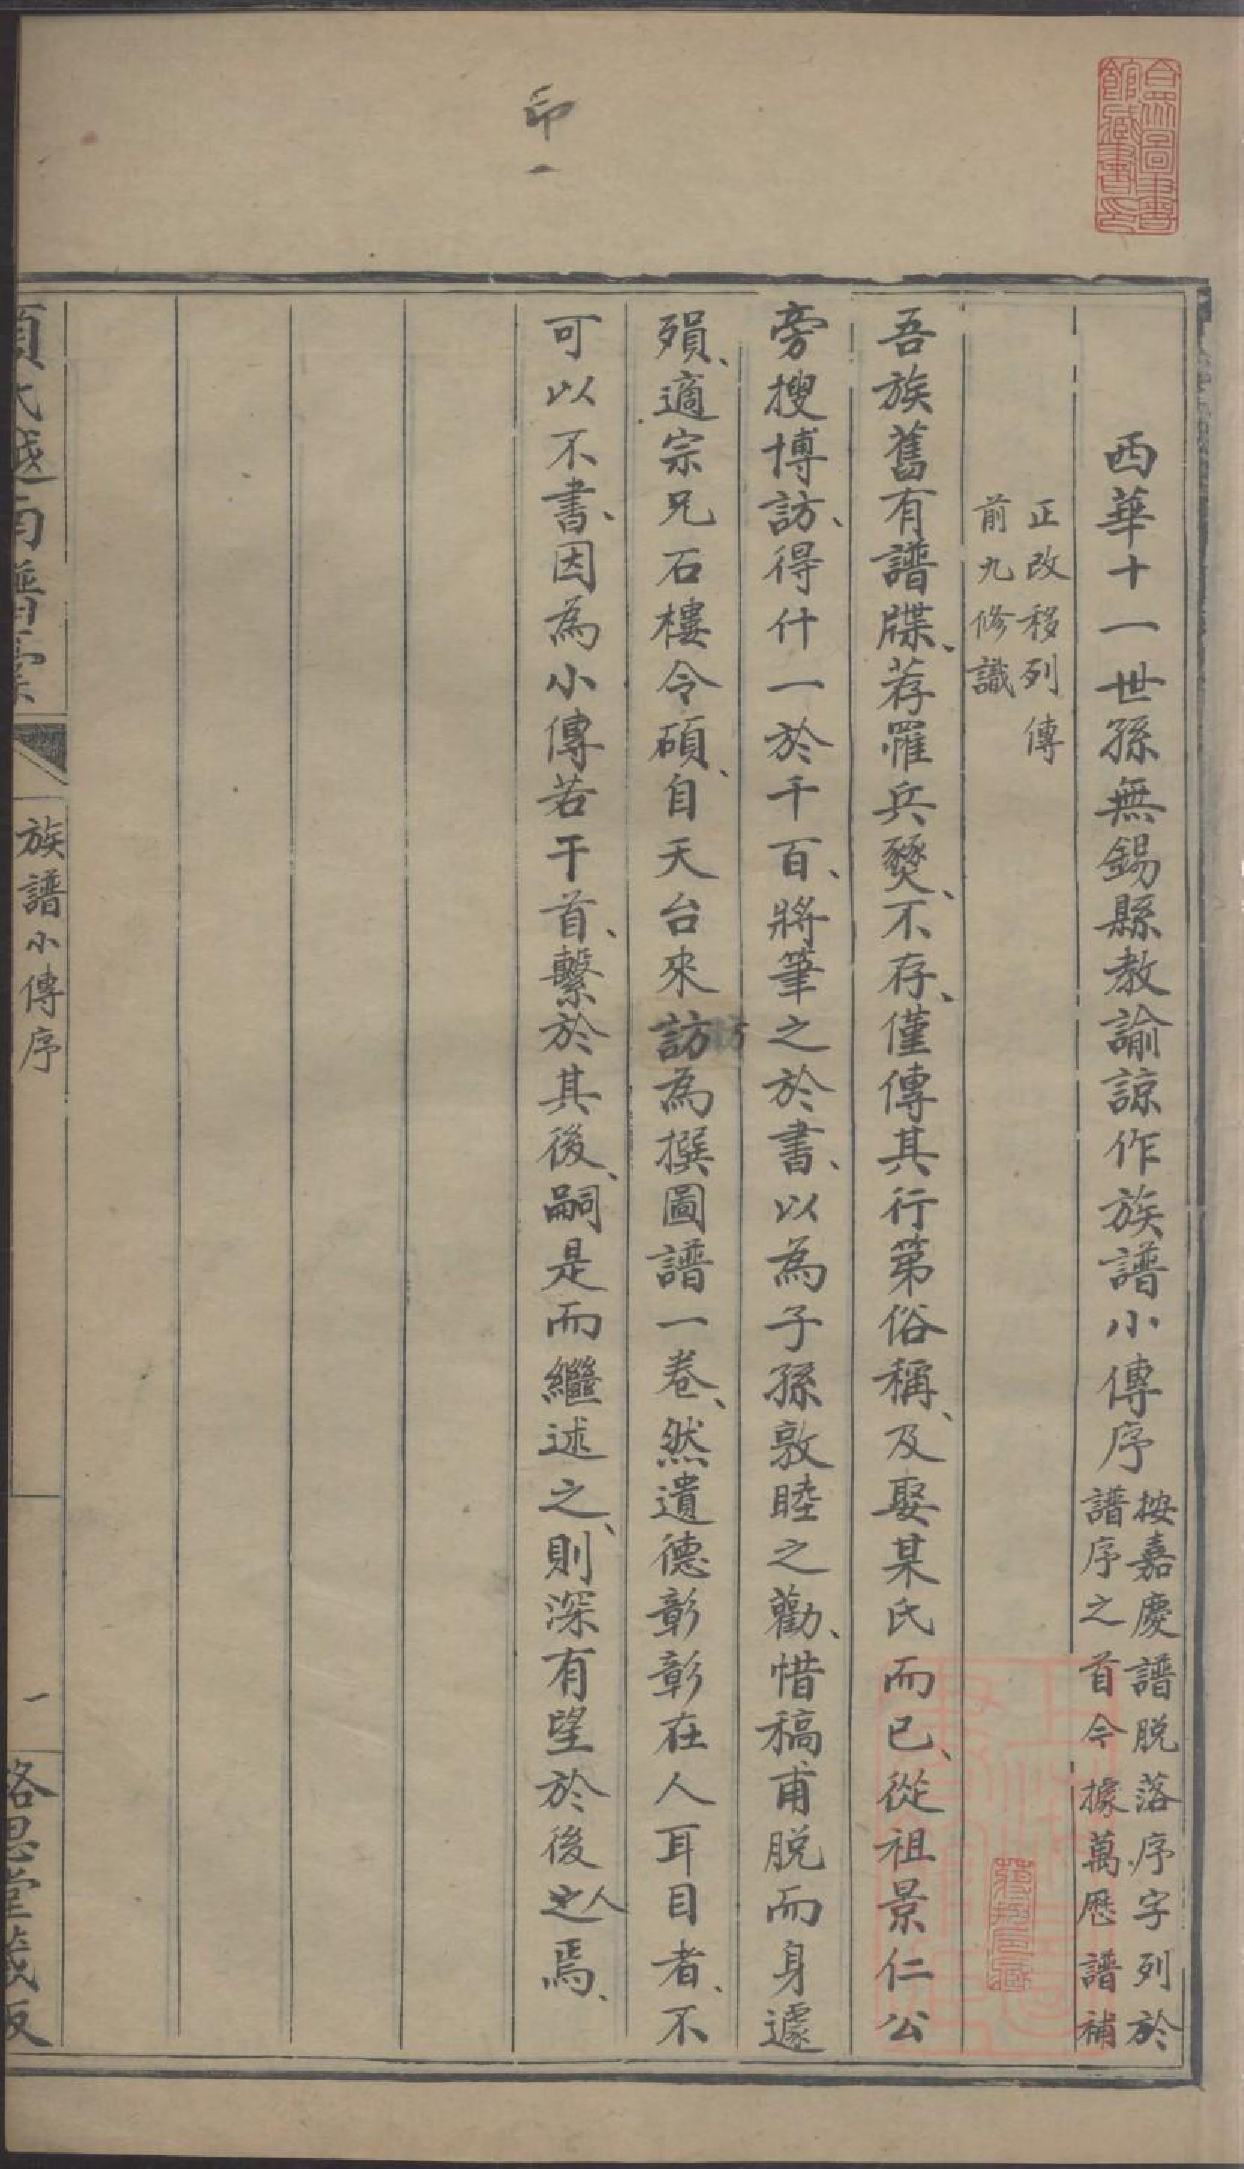 印一
西華十一世孫無錫縣教諭諒作族譜小傳序
按嘉慶譜脫落序字列於
譜序之首今據萬歷譜補
正改移列傳
前九修識
吾族舊有譜牒、荐罹兵燹、不存、僅傳其行第俗稱、及娶某氏而已、從祖景仁公
旁搜博訪、得什一於千百、將筆之於書、以為子孫敦睦之勸、惜稿甫脫而身遽
殞、適宗兄石樓令碩、自天台來訪為撰圖譜一卷、然遺德彰彰在人耳目者、不
可以不書、因為小傳若干首、繫於其後、嗣是而繼述之、則深有望於後之人焉、
族譜小傳序
一